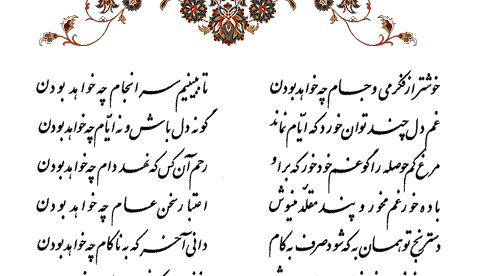 خوشتر از فکر می و جام چه خواهد بودن تا ببینیم سرانجام چه خواهد بودن
غم دل چند توان خورد که ایّام نماند گو نه دل باش و نه ایّام چه خواهد بودن
مرغ کم حوصله را گو غم خود خور که بر او رحم آن کس که نهد دام چه خواهد بودن
باده خور غم مخور و پند مقلّد منیوش اعتبار سخن عام چه خواهد بودن
دسترنج تو همان به که شود صرف به کام دانی آخر که به ناکام چه خواهد بودن